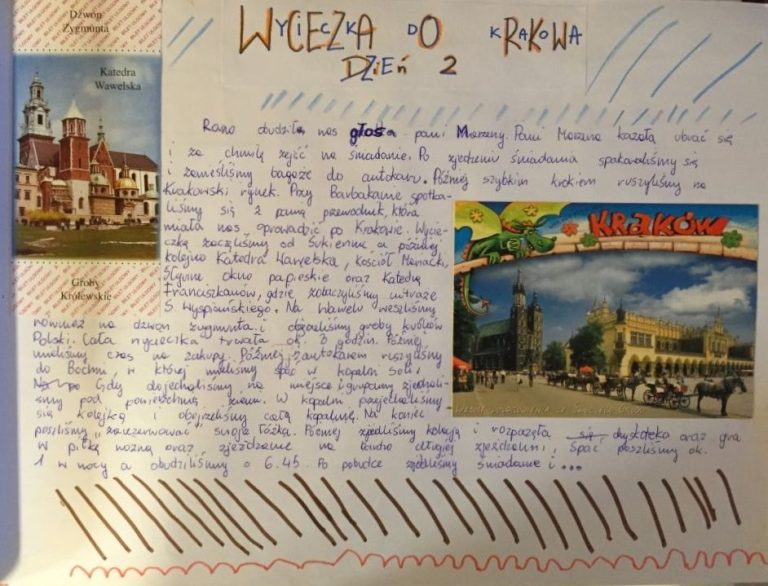 Dzwon
Zygmunta
Katedra
Wawelska
Groby
Królewskie
WYCIECZKA DO KRAKOWA
DZIEń 2
Rano obudził nas głos pani Marzeny. Pani Marzena kazała ubrać się
i za chwilę zejść na śniadanie. Po zjedzeniu śniadania spakowaliśmy się
i zanieśliśmy bagaże do autokaru. Później szybkim krokiem ruszyliśmy na
Krakowski rynek. Przy Barbakanie spotka-
liśmy się z panią przewodnik, która
miała nas oprowadzić po Krakowie. Wycie-
czkę zaczęliśmy od Sukiennic a później
kolejno Katedra Wawelska, kościół Mariacki,
Słynne okno papieskie oraz Katedrę
Franciszkanów, gdzie zobaczyliśmy witraże
S. Wyspiańskiego. Na Wawelu weszliśmy
również na dzwon zygmunta i obejrzeliśmy groby królów
Polski. Cała wycieczka trwała ok. godzin. Później
mieliśmy czas na zakupy. Później autokarem ruszyliśmy
do Bochni, w której mieliśmy spać w kopalni soli.
Gdy dojechaliśmy na miejsce i grupami zjechali-
śmy pod powierzchnię ziemi. W kopalni przejechaliśmy
się kolejką i obejrzeliśmy całą kopalnię. Na koniec
poszliśmy "zarezerwować" swoje łóżka. Później zjedliśmy kolację i rozpoczęła się dyskoteka oraz gra
w piłkę nożną oraz zjeżdżanie na bardzo długiej zjeżdżalni. Spać poszliśmy ok.
1 w nocy a obudziliśmy o 6.45. Po pobudce zjedliśmy śniadanie i ...
KRAKÓW